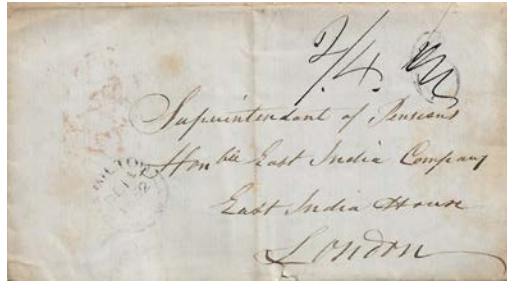 2/4.
Superintendant of Pensions
Hon ble East India Company
East India House
London